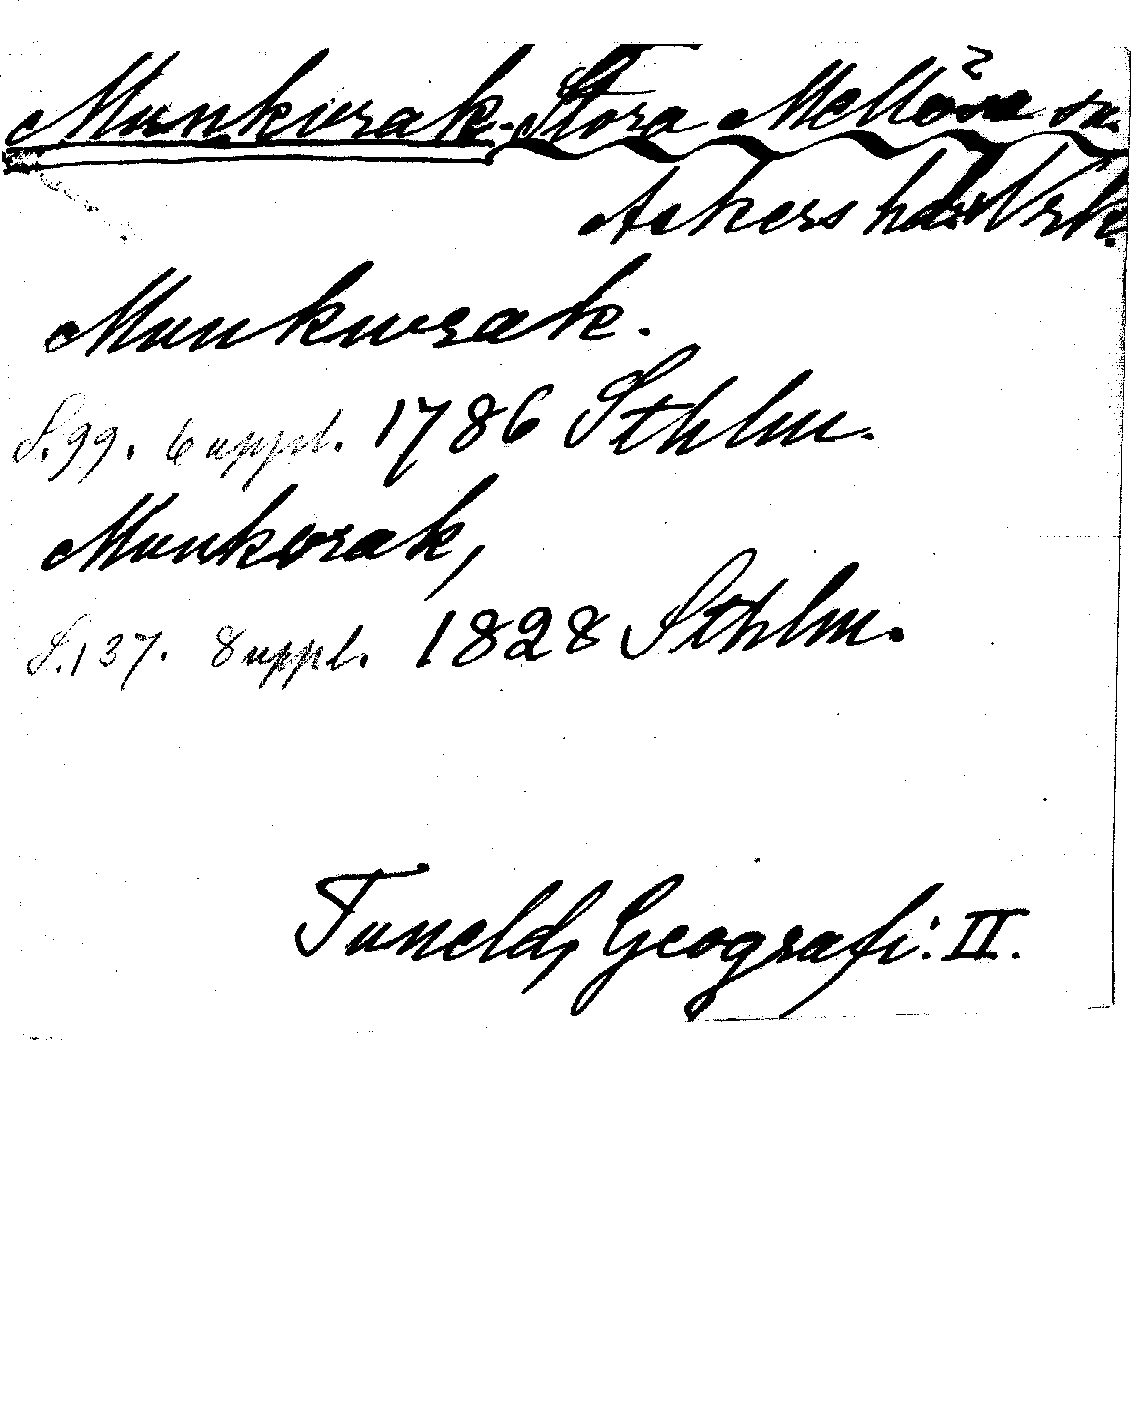 Munkvrak. Stora Mellösa sn.
Askers hd. Nrk.
Munkwrak.
S. 99. 6 uppl. 1786 Sthlm.
Munkvrak,
S. 137. 8 uppl. 1828 Sthlm.
Tuneld, Geografi: II.